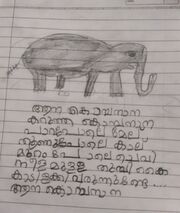 ആന കൊമ്പനാന
കറുത്ത കൊമ്പനാന
പാറപോലെ മേല്
തൂണുപോലെ കാല്
മുറം പോലെ ചെവി
നീളമുള്ള തുമ്പി കൈ
കാട്ടിലൂടെ വരുന്നുണ്ടേ ...
ആന കൊമ്പനാന